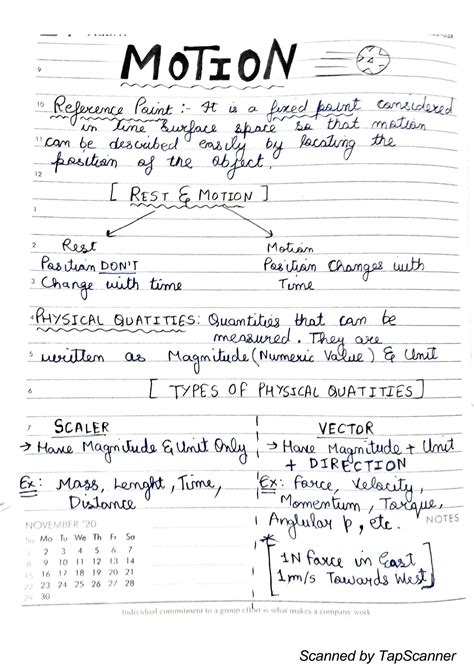 MOTION
9
10 Reference Point :- It is a fixed point considered
in line surface space so that motion
11 can be described easily by locating the
position of the object.
12
[ REST & MOTION ]
1
2 Rest Motion
Position DON'T Position Changes with
3 Change with time Time
4 PHYSICAL QUATITIES: Quantities that can be
measured. They are
5 written as Magnitude (Numeric Value) & Unit
6 [ TYPES OF PHYSICAL QUATITIES ]
7 SCALER VECTOR
→ Have Magnitude & Unit Only → Have Magnitude + Unit
+ DIRECTION
Ex: Mass, Lenght, Time, Ex: Force, Velocity,
Distance Momentum, Torque,
Anglular p, etc.
NOVEMBER '20 NOTES
Su Mo Tu We Th Fr Sa
1 2 3 4 5 6 7
8 9 10 11 12 13 14
15 16 17 18 19 20 21
22 23 24 25 26 27 28
29 30
* [ 1N force in East
1m/s Towards West ]
Individual commitment to a group effort is what makes a company work
Scanned by TapScanner